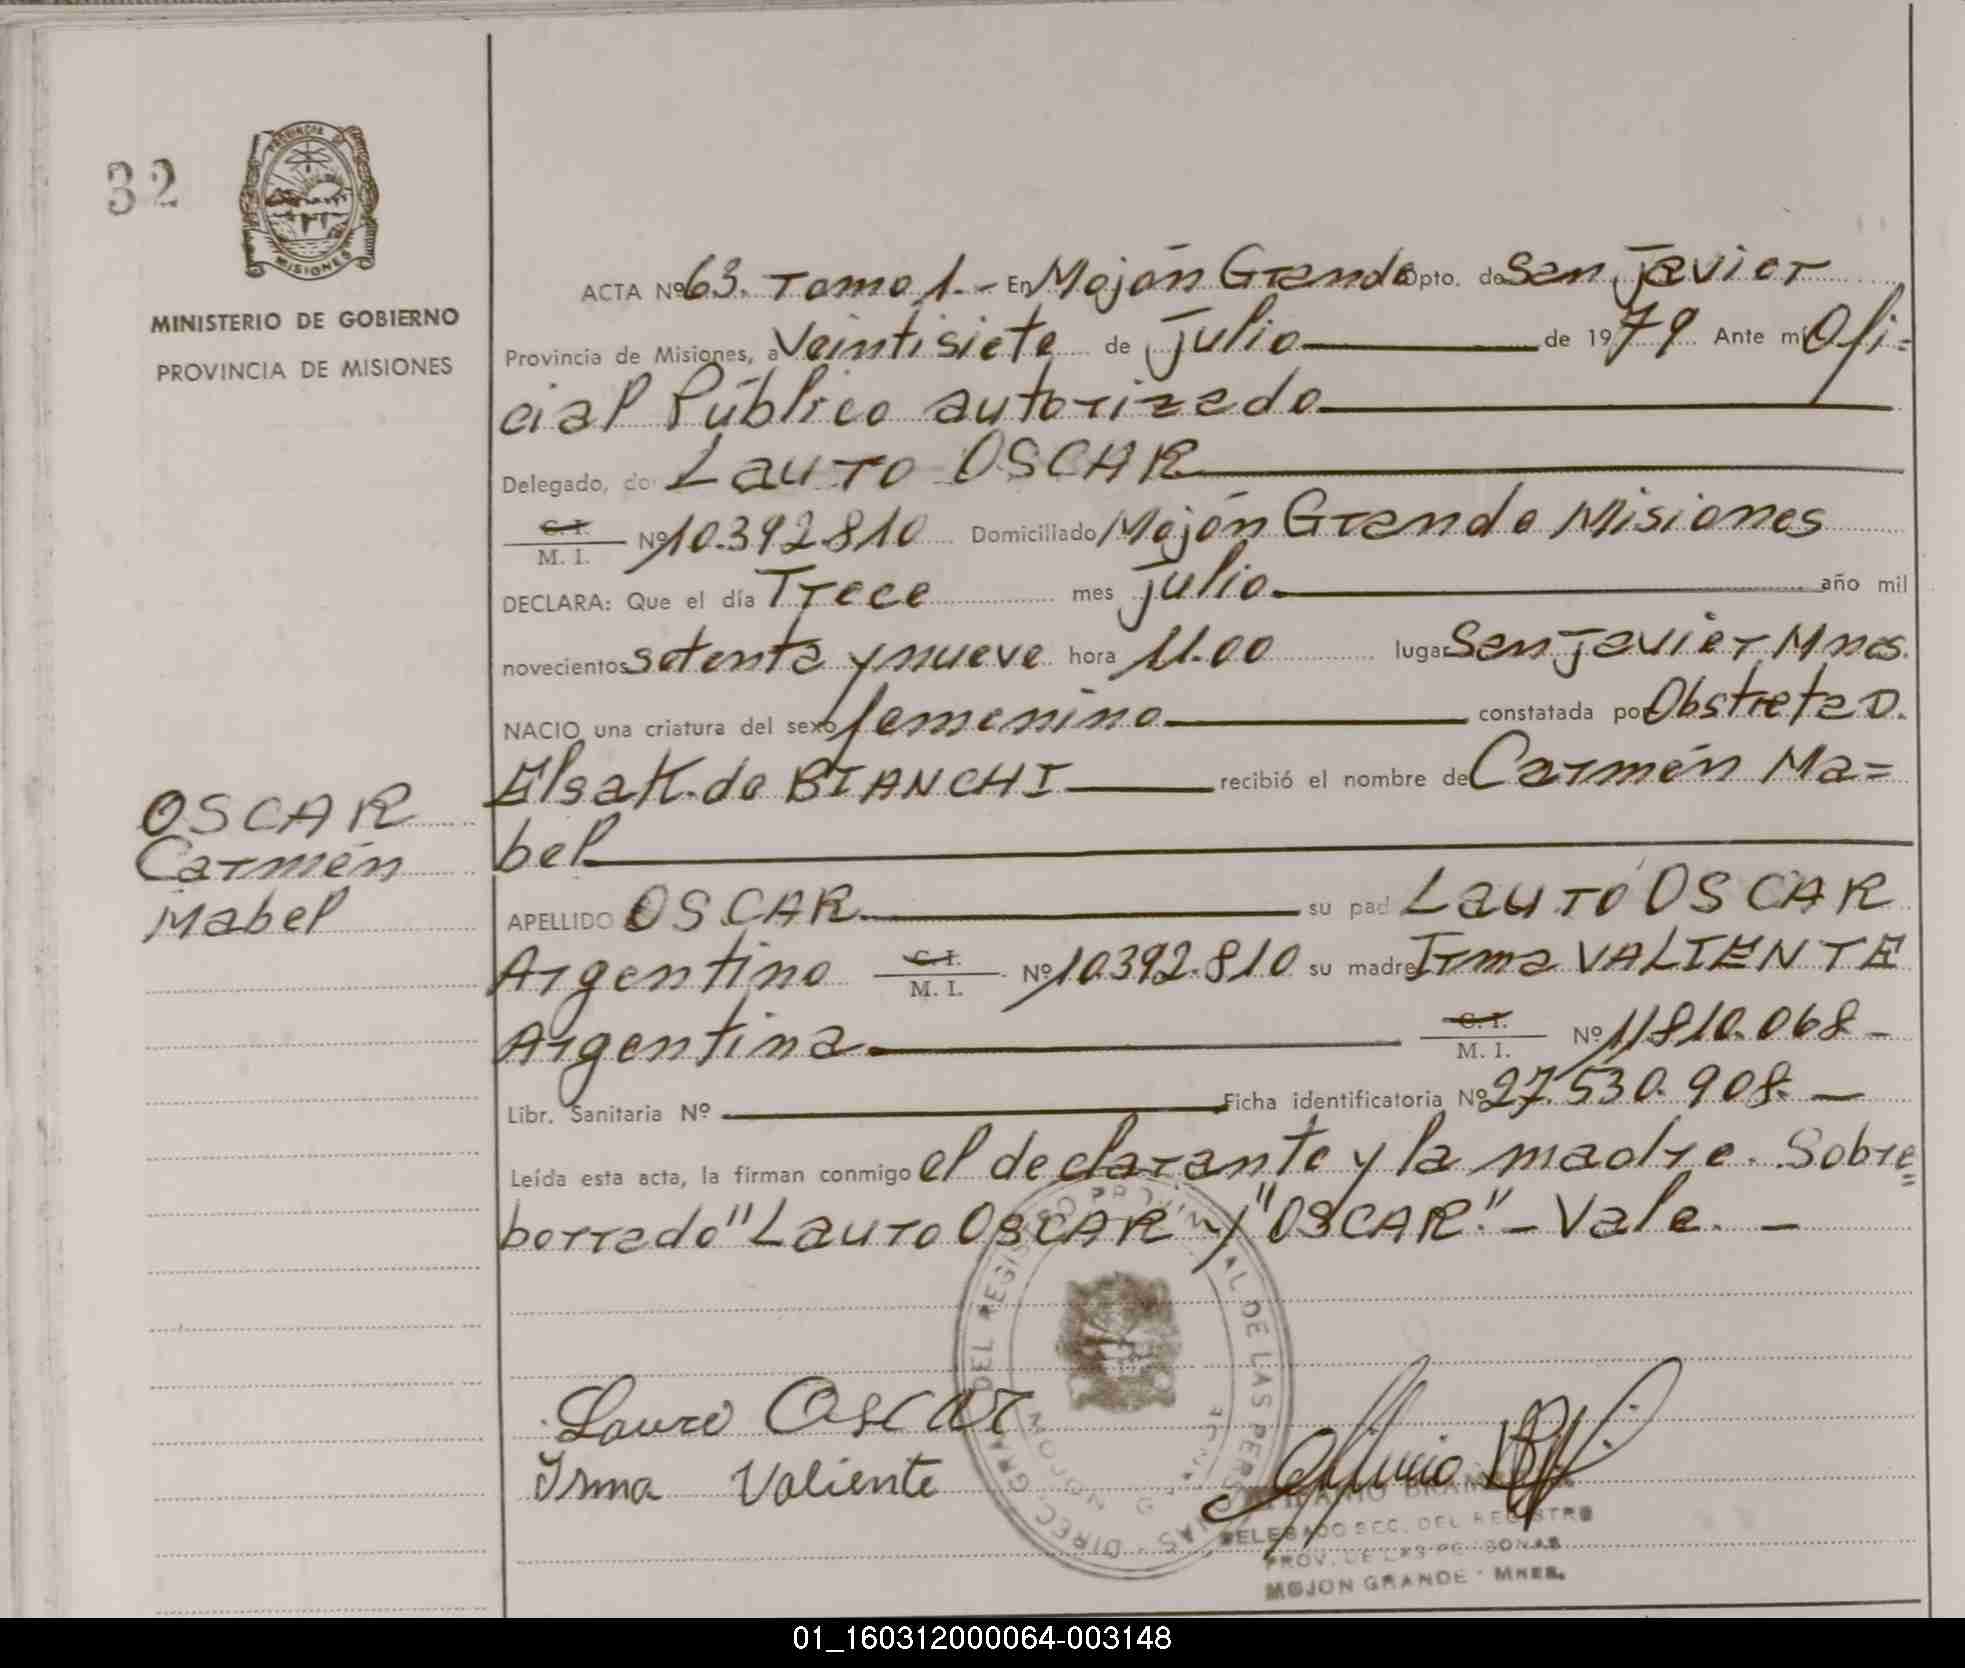 32
PROVINCIA DE
MISIONES
MINISTERIO DE GOBIERNO
PROVINCIA DE MISIONES
OSCAR
Carmén
Mabel
ACTA Nº 63. Tomo 1.- En Mojón Grande Dpto. de San Javier
Provincia de Misiones, a Veintisiete de julio de 1979 Ante mí Ofi-
cial Público autorizado
Delegado, do Lauro OSCAR
C. I.
M. I. Nº 10.392.810 Domiciliado Mojón Grande Misiones
DECLARA: Que el día Trece mes julio año mil
novecientos setenta y nueve hora 11.00 lugar San Javier Mnes.
NACIO una criatura del sexo femenino constatada por Obstreta D.
Elsa K. de BIANCHI recibió el nombre de Carmén Ma=
bel
APELLIDO OSCAR su pad Lauro OSCAR
Argentino C. I. M. I. Nº 10.392.810 su madre Irma VALIENTE
Argentina C. I. M. I. Nº 11810.068-
Libr. Sanitaria Nº Ficha identificatoria Nº 27.530.908.-
Leída esta acta, la firman conmigo el declarante y la madre. Sobre=
borrado "Lauro OSCAR" y "OSCAR."- Vale. -
Lauro Oscar
Irma Valiente
DIREC. GRAL. DEL REGISTRO PROVINCIAL DE LAS PERSONAS
MOJON GRANDE
DELEGADO SEC. DEL REGISTRO
PROV. DE LAS PERSONAS
MOJON GRANDE - MNES.
01_160312000064-003148